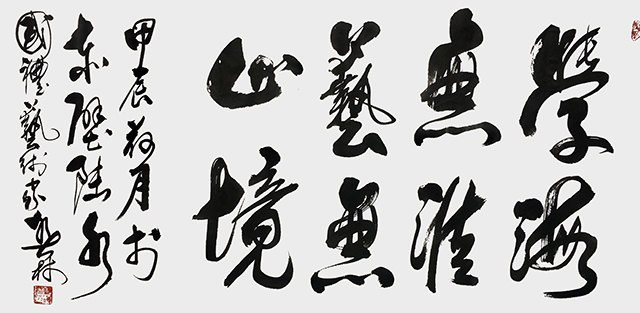 學海
無涯
藝無
止境
甲辰荷月於
赤壁陸水
國禮藝術家